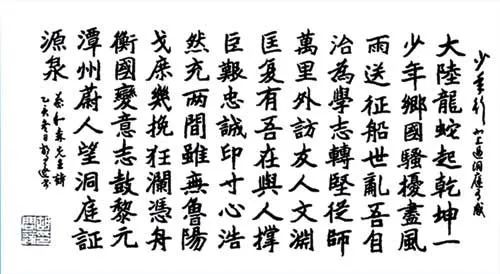 少年行 北上過洞庭有感
大陸龍蛇起乾坤一
少年鄉國騷擾盡風
雨送征船世亂吾自
治為學志轉堅從師
萬里外訪友人文淵
匡复有吾在與人撐
巨艱忠誠印寸心浩
然充两間雖無魯陽
戈庶幾挽狂瀾憑舟
衡國變意志鼓黎元
潭州蔚人望洞庭証
源泉
蔡和森先生詩
乙亥冬日